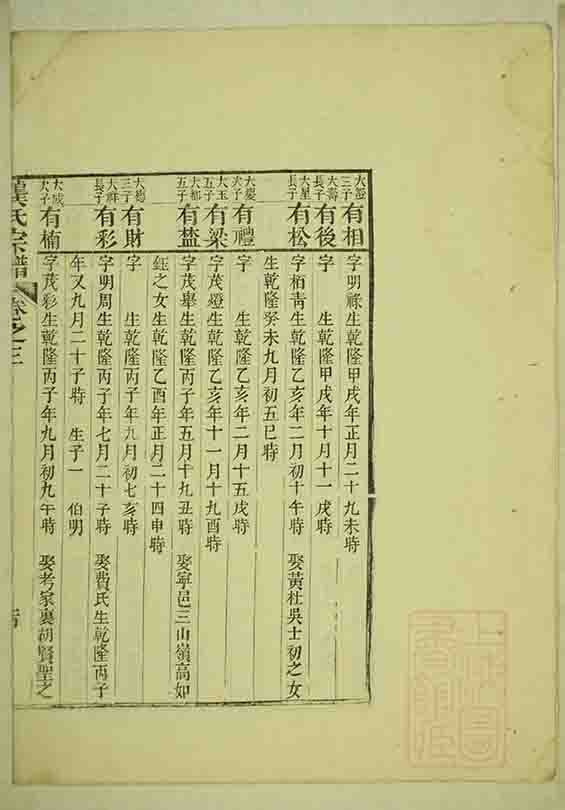 大 三子 有相 字明祿生乾隆甲戌年正月二十九未時
大壽長子 有後 字 生乾隆甲戌年十月十一戌時
大星長子 有松 字栢靑生乾隆乙亥年二月初十午時 娶黃杜吳士初之女
生乾隆癸未九月初五巳時
大慶次子 有禮 字 生乾隆乙亥年二月十五戌時
大玉五子 有梁 字茂燈生乾隆乙亥年十一月十九酉時
大都五子 有盐 字茂舉生乾隆丙子年五月十九丑時 娶寧邑三山嶺高如
鈺之女生乾隆乙酉年正月二十四申時
大德三子 有財 字 生乾隆丙子年九月初七亥時
大祥長子 有彩 字明周生乾隆丙子年七月二十子時 娶費氏生乾隆丙子
年又九月二十子時 生子一 伯明
大成 子 有楠 字茂彩生乾隆丙子年九月初九午時 娶考家裏胡賢聖之
氏宗譜 卷之三